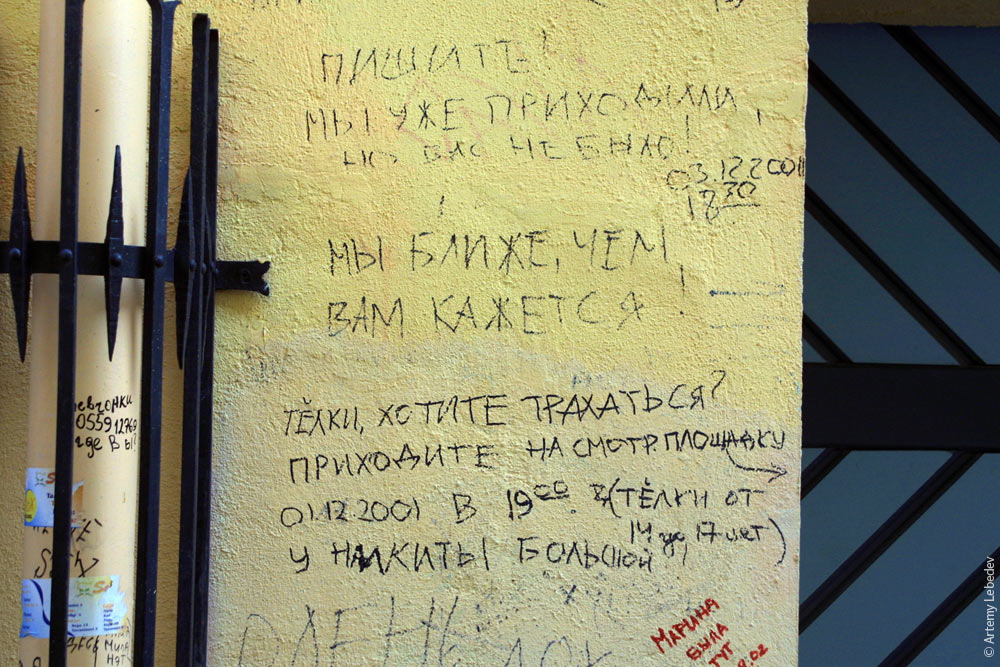 ПИШИТЕ!
МЫ УЖЕ ПРИХОДИЛИ,
НО ВАС НЕ БЫЛО!
03.12.2001
18 30
МЫ БЛИЖЕ, ЧЕМ
ВАМ КАЖЕТСЯ!
ТЁЛКИ, ХОТИТЕ ТРАХАТЬСЯ?
ПРИХОДИТЕ НА СМОТР. ПЛОЩАДКУ
01.12.2001 В 19 00. (ТЁЛКИ ОТ
14 до 17 лет)
У НИКИТЫ БОЛЬШОЙ
МАРИНА
БЫЛА
ТУТ
евчонки
где Вы?
МИЛА
© Artemy Lebedev